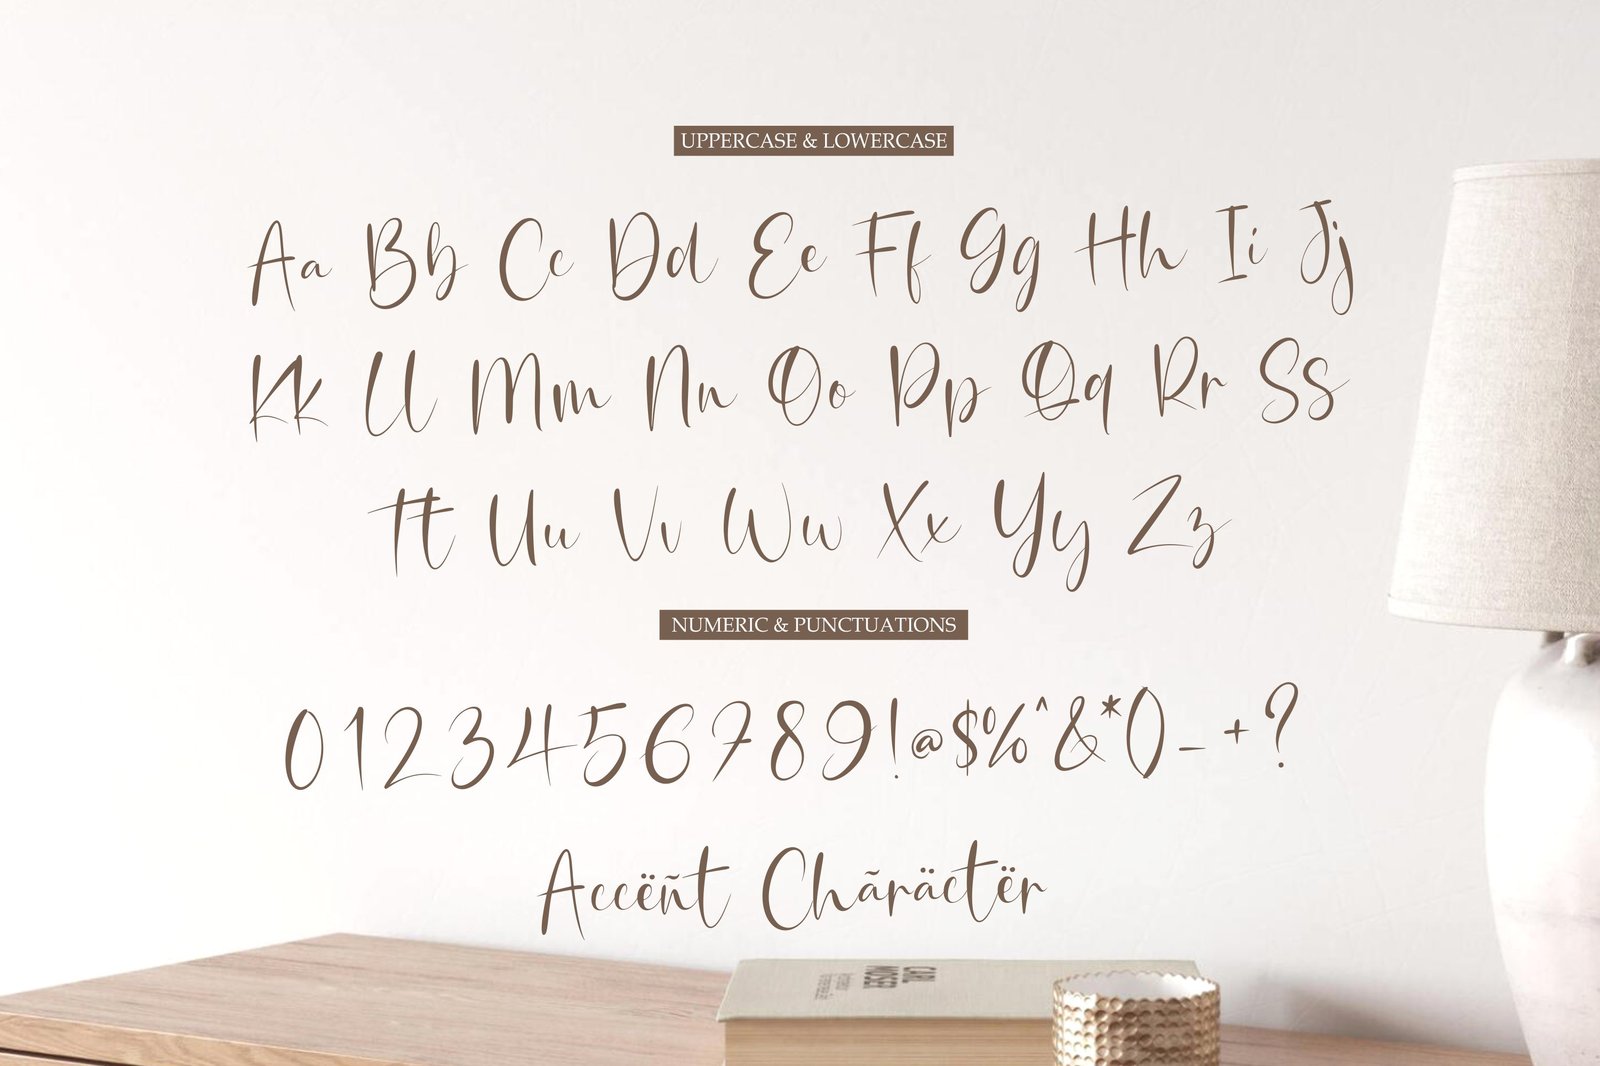 UPPERCASE & LOWERCASE
Aa Bb Cc Dd Ee Ff Gg Hh Ii Jj
Kk Ll Mm Nn Oo Pp Qq Rr Ss
Tt Uu Vv Ww Xx Yy Zz
NUMERIC & PUNCTUATIONS
0123456789!@$%^&*()_-+?
Accëñt Chãräctër
CARL
MOSER